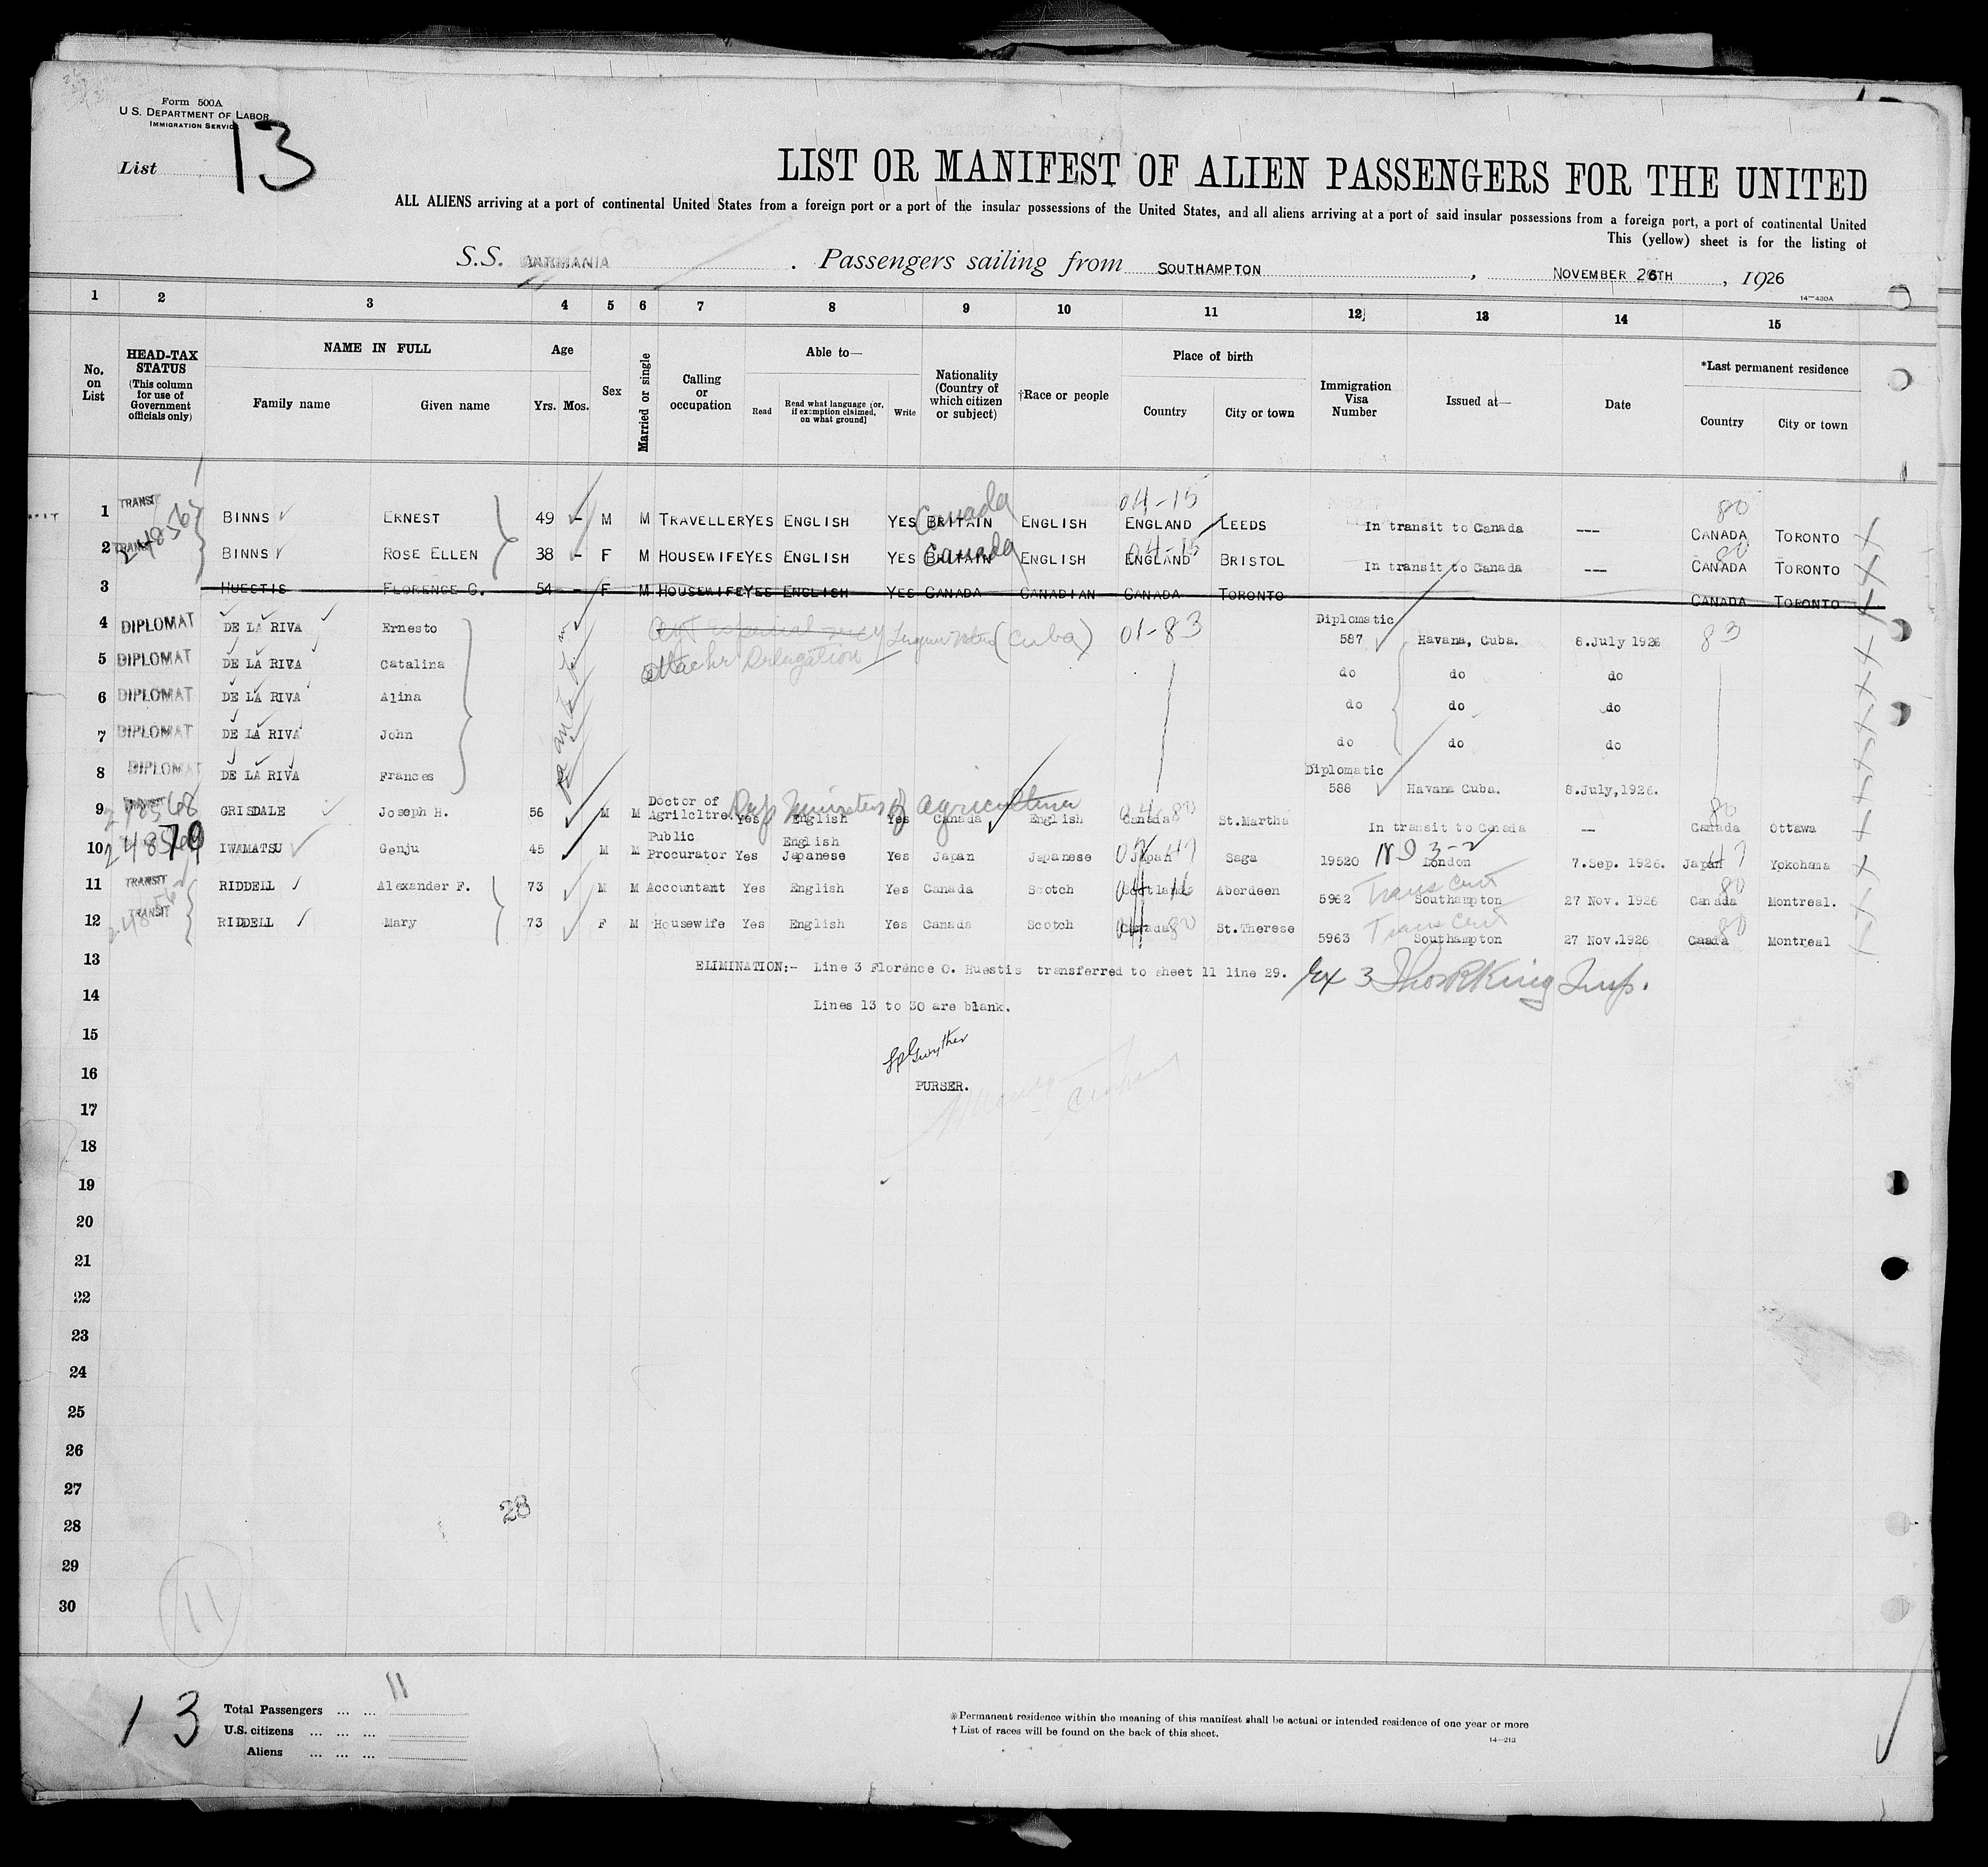 Form 500A
U. S. DEPARTMENT OF LABOR
IMMIGRATION SERVICE
List 13
LIST OR MANIFEST OF ALIEN PASSENGERS FOR THE UNITED
ALL ALIENS arriving at a port of continental United States from a foreign port or a port of the insular possessions of the United States, and all aliens arriving at a port of said insular possessions from a foreign port, a port of continental United
This (yellow) sheet is for the listing of
S.S. CARMANIA . Passengers sailing from SOUTHAMPTON , NOVEMBER 26TH , 1926
14—430A
1 2 3 4 5 6 7 8 9 10 11 12 13 14 15
No. on List
HEAD-TAX STATUS (This column for use of Government officials only)
NAME IN FULL
Family name Given name
Age
Yrs. Mos.
Sex
Married or single
Calling or occupation
Able to—
Read
Read what language (or, if exemption claimed, on what ground)
Write
Nationality (Country of which citizen or subject)
†Race or people
Place of birth
Country City or town
Immigration Visa Number
Issued at—
Date
*Last permanent residence
Country City or town
04-15 80
1 TRANSIT BINNS ERNEST 49 - M M TRAVELLER YES ENGLISH YES BRITAIN Canada ENGLISH ENGLAND LEEDS In transit to Canada --- CANADA TORONTO
04-15 80
2 TRANSIT BINNS ROSE ELLEN 38 - F M HOUSEWIFE YES ENGLISH YES BRITAIN Canada ENGLISH ENGLAND BRISTOL In transit to Canada --- CANADA TORONTO
3 HUESTIS FLORENCE O. 54 - F M HOUSEWIFE YES ENGLISH YES CANADA CANADIAN CANADA TORONTO CANADA TORONTO
4 DIPLOMAT DE LA RIVA Ernesto (Cuba) 01-83 Diplomatic 587 Havana, Cuba. 8.July 1926 83
5 DIPLOMAT DE LA RIVA Catalina Delegation do do do
6 DIPLOMAT DE LA RIVA Alina do do do
7 DIPLOMAT DE LA RIVA John do do do
8 DIPLOMAT DE LA RIVA Frances Diplomatic 588 Havana Cuba. 8.July,1926.
9 TRANSIT GRISDALE Joseph H. 56 M M Doctor of Agrilcltre. Yes English Yes Canada English Canada St.Martha In transit to Canada -- Canada Ottawa
Dep Minister of agriculture
10 IWAMATSU Genju 45 M M Public Procurator Yes English Japanese Yes Japan Japanese Japan Saga 19520 London 7.Sep. 1926. Japan Yokohama
11 TRANSIT RIDDELL Alexander F. 73 M M Accountant Yes English Yes Canada Scotch Scotland Aberdeen 5962 Trans Cert Southampton 27 Nov. 1926 Canada 80 Montreal.
12 TRANSIT RIDDELL Mary 73 F M Housewife Yes English Yes Canada Scotch Canada St.Therese 5963 Trans Cert Southampton 27 Nov.1926 Caada 80 Montreal
13 ELIMINATION:- Line 3 Florence O. Huestis transferred to sheet 11 line 29. Ex 3 Thos R King Insp.
14 Lines 13 to 30 are blank.
15
16 PURSER.
17
18
19
20
21
22
23
24
25
26
27
28
28
29
30
11
13
Total Passengers ... ... 11
U.S. citizens ... ... ...
Aliens ... ... ...
*Permanent residence within the meaning of this manifest shall be actual or intended residence of one year or more
†List of races will be found on the back of this sheet.
14—213